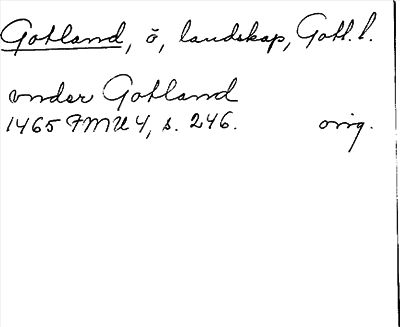 Gotland, ö, landskap, Gotl. l.
vnder Gotland
1465 FMU 4, s. 246. orig.